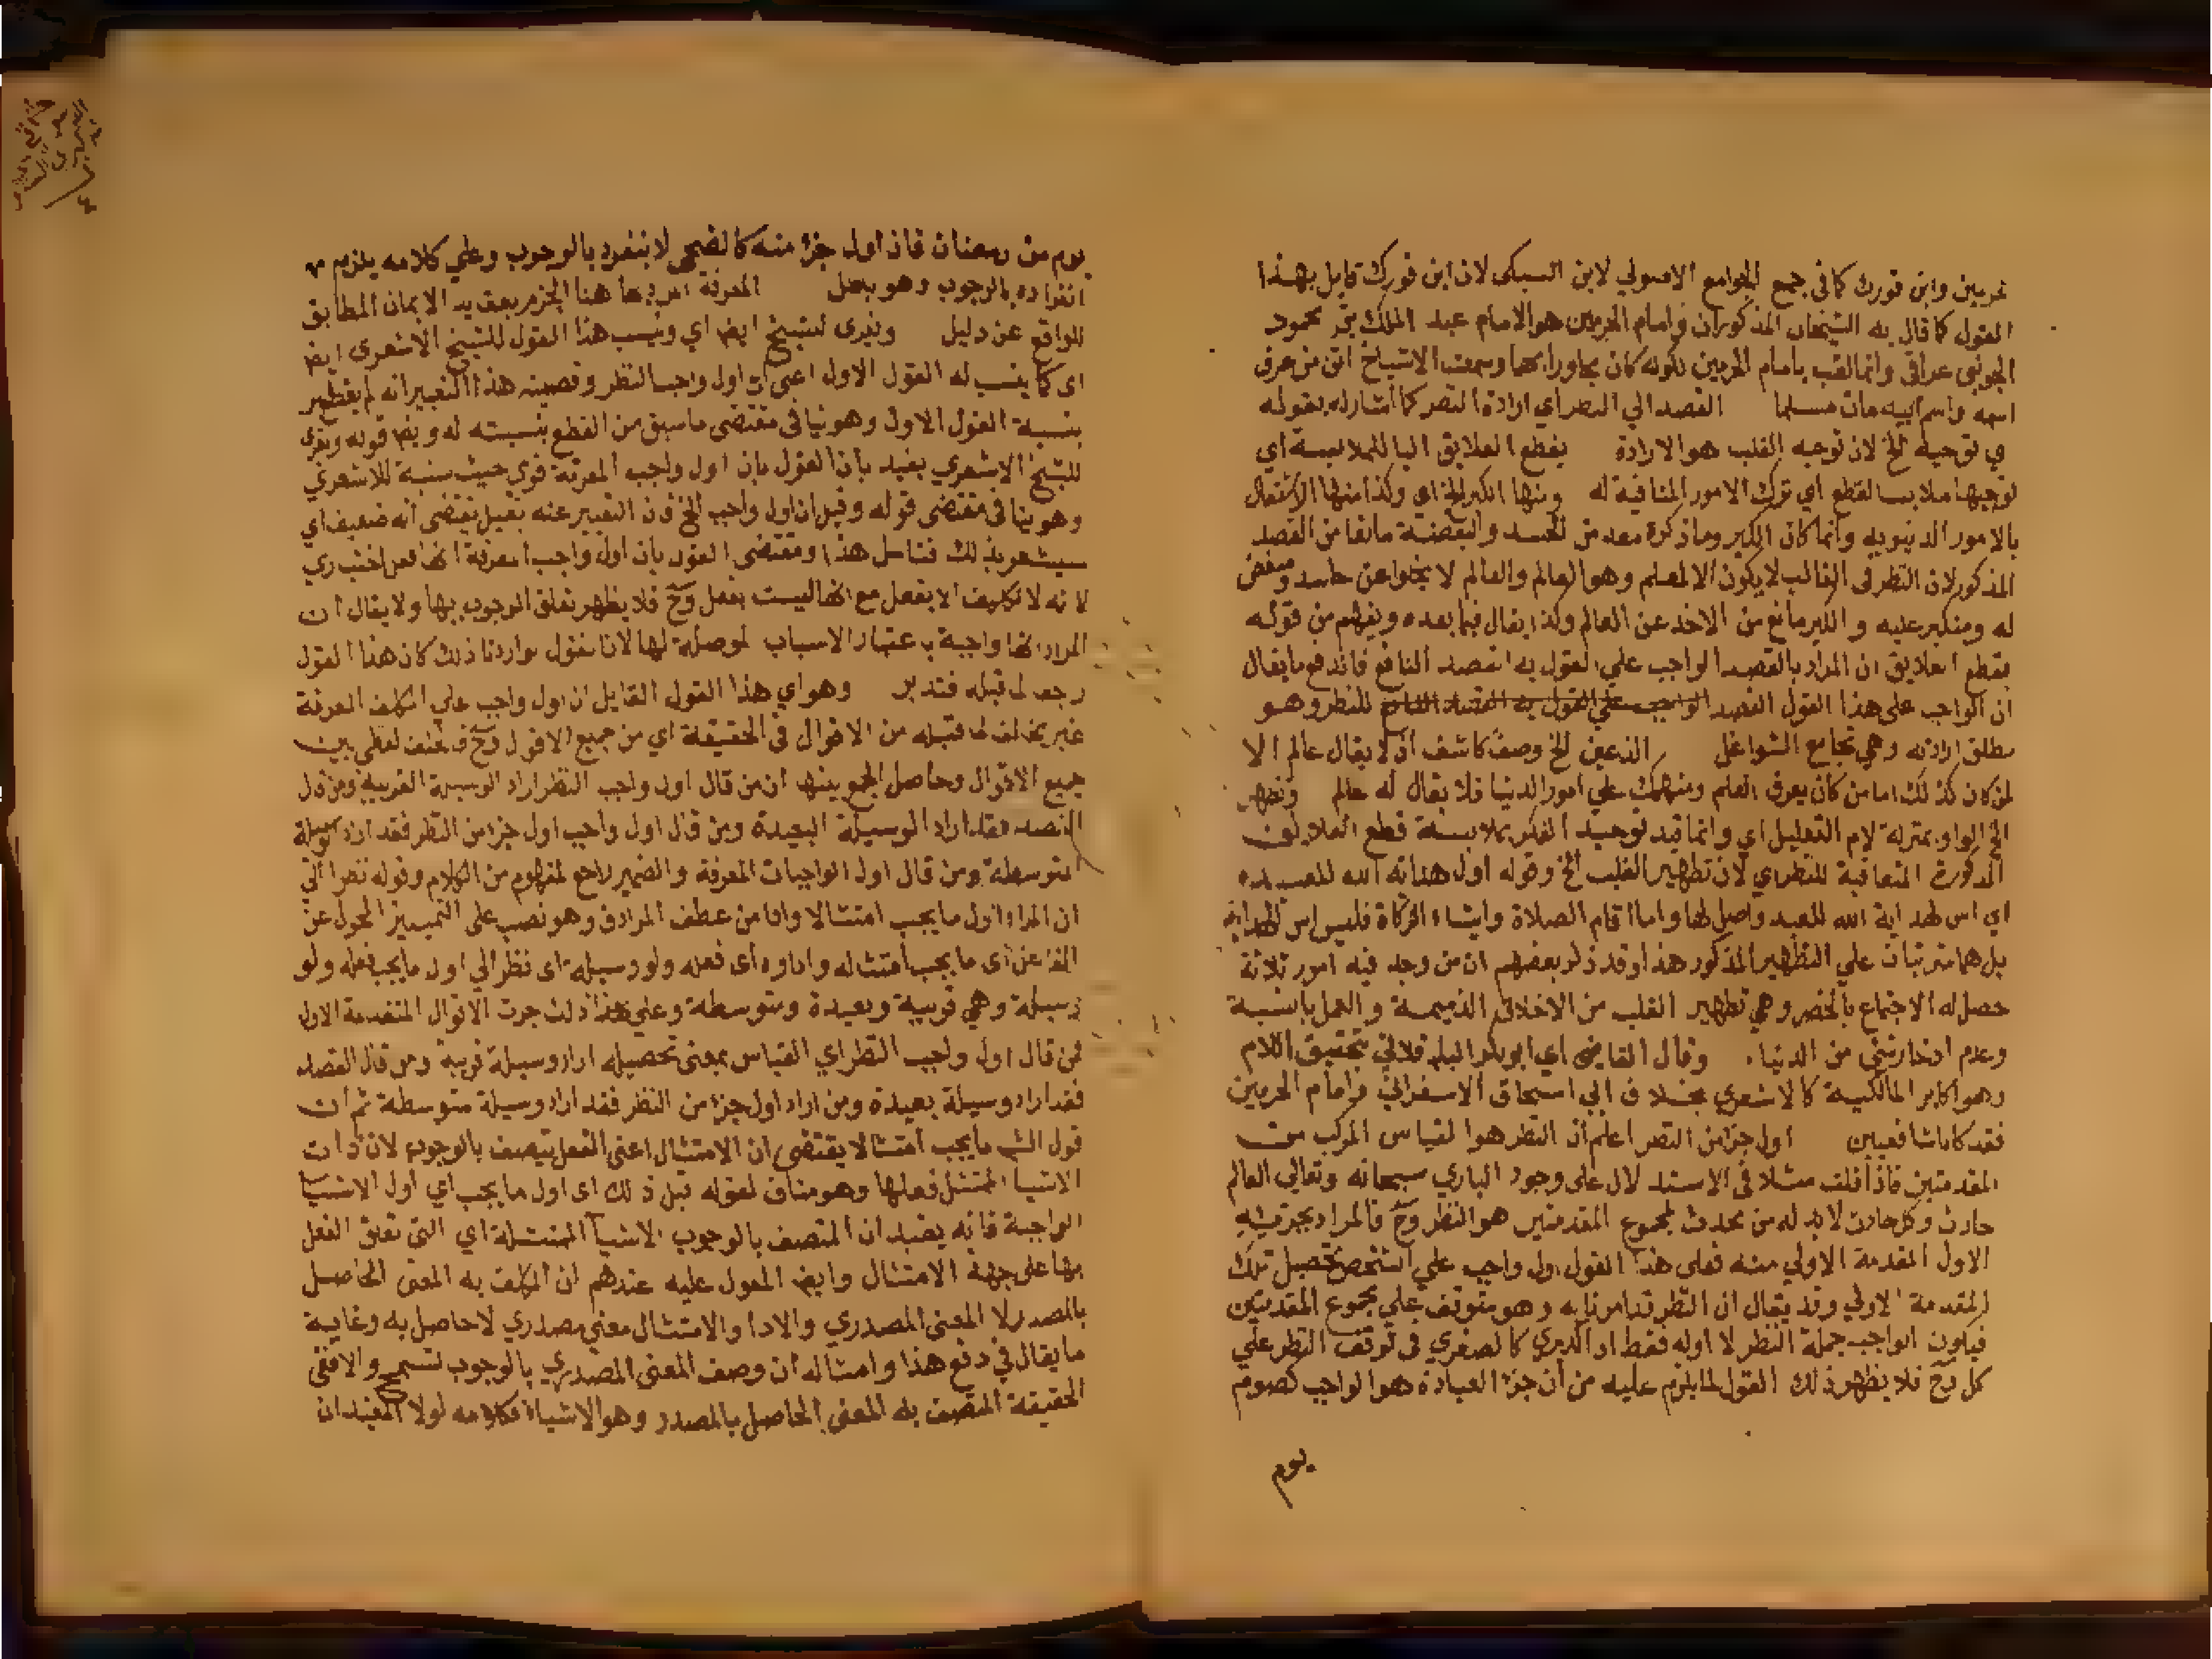 الحرمين وابن فورك كما في جمع الجوامع الاصولي لابن السبكي لان ابن فورك قايل بهذا
القول كما قال به الشيخان المذكوران وامام الحرمين هو الامام عبد الملك محمود
الجويني عراقي وانما لقب بامام الحرمين لكونه كان مجاورا بهما وسمعت الاشياخ
اسمه واسم ابيه القصد الي النظر اي ارادة النظر كما اشار له بقوله
في توجيه الخ لان توجيه القلب هو الارادة بقطع العلايق البا للملابسة اي
توجيها ملابسا لقطع اي ترك الامور المنافية له ومنها الكبر الخ اي وكذا منها الاشتغال
بالامور الدنيويه وانما كان الكبر وما ذكره معه من الحسد والبغضة مانعا من القصد
المذكور لان النظر في الغالب لا يكون الا لمعلم وهو العالم والعالم لا يخلوا عن حاسد ومبغض
له ومتكبر عليه والكبر مانع من الاخذ عن العالم وكذا يقال فيما بعده ويفهم من قوله
بقطع العلايق ان المراد بالقصد الواجب علي القول به القصد النافع فاندفع ما يقال
ان الواجب على هذا القول القصد الواجب علي القول به القصد للنظر وهو
مطلق ارادته وهي تجامع الشواغل الذعين الخ وصف كاشف اذ لا يقال عالم الا
لمن كان كذلك اما من كان يعرف العلم ومنهمك علي امور الدنيا فلا يقال له عالم وتطهير
الخ الواو بمنزلة لام التعليل اي وانما قيد توجيه الفكر بملابسة قطع العلايق
المذكورة المنافية للنظر اي لان تطهير القلب الخ وقوله اول هداية الله للعبد
اي اس لهداية الله للعبد واصل لها واما اقام الصلاة وايتاء الزكاة فليس اس لهدايته
بل هما مترتبان علي التطهير المذكور هذا وقد ذكر بعضهم ان من وجد فيه امور ثلاثة
حصل له الاجتماع بالخضر وهي تطهير القلب من الاخلاق الذميمة والعمل بالسنة
وعدم ادخار شي من الدنيا وقال القاضي اي ابو بكر الباقلاني بتحقيق اللام
وهو اكابر المالكية كالاشعري بخلاف ابي اسحاق الاسفرائني وامام الحرمين
فقد كانا شافعيين اول جزء من النظر اعلم ان النظر هو القياس المركب من
المقدمتين فاذا قلت مثلا في الاستدلال على وجود الباري سبحانه وتعالي العالم
حادث وكل حادث لا بد له من محدث فمجموع المقدمتين هو النظر وح فالمراد بجزئيه
الاول المقدمة الاولي منه فعلى هذا القول اول واجب علي الشخص تحصيل تلك
المقدمة الاولي وقد يقال ان النظر قد امرنا به وهو متوقف علي مجموع المقدمتين
فيكون الواجب جملة النظر لا اوله فقط اذ الكبري كالصغري في توقف النظر علي
كل وح فلا يظهر ذلك القول لما يلزم عليه من ان جزء العبادة هو الواجب كصوم
يوم
يوم من رمضان فان اول جزء منه كالضحي لا ينفرد بالوجوب وعلي كلامه يلزم
انفراده بالوجوب وهو باطل المعرفة المراد بها هنا الجزم بعقايد الايمان المطابق
للواقع عن دليل ويعزى للشيخ ايضا اي وينسب هذا القول للشيخ الاشعري ايضا
اى كما ينسب له القول الاول اعني ان اول واجب النظر وقضيته هذا التعبير انه لم يقطع
بنسبة القول الاول وهو ينافي مقتضى ما سبق من القطع بنسبته له وايضا قوله ويعزى
للشيخ الاشعري يفيد بان القول بان اول واجب المعرفة قوي حيث نسبة للاشعري
وهو ينافى مقتضى قوله وقيل ان اول واجب الخ فان التعبير عنه بقيل يقتضي انه ضعيف اي
يشعر بذلك فتامل هذا ومقتضى القول بان اول واجب المعرفة انها فعل اختياري
لانه لا تكليف الا بفعل مع انها ليست بفعل وح فلا يظهر تعلق الوجوب بها ولا يقال ان
المراد انها واجبة باعتبار الاسباب الموصلة لها لانا نقول لو اردنا ذلك كان هذا القول
رجع لما قبله فتدبر وهو اي هذا القول القايل ان اول واجب علي المكلف المعرفة
غير مخالف لما قبله من الاقوال في الحقيقة اي من جميع الاقوال وح فالخلف لفظي بين
جميع الاقوال وحاصل الجمع بينها ان من قال اول واجب النظر اراد الوسيلة القريبة ومن قال
القصد فقد اراد الوسيلة البعيدة ومن قال اول واجب اول جزء من النظر فقد اراد الوسيلة
المتوسطة ومن قال اول الواجبات المعرفة والضمير راجع لمفهوم من الكلام وقوله نظرا الي
ان المراد اول ما يجب امتثالا وادا من عطف المرادف وهو نصب على التمييز المحول عن
الفاعل اى ما يجب امتثاله واداوه أى فعله ولو وسيلة اى نظر الي اول ما يجب فعله ولو
وسيلة وهي قريبة وبعيدة ومتوسطة وعلي هذا ذلك جرت الاقوال المتقدمة الاول
فمن قال اول واجب النظر اي القياس بمعنى تحصيله اراد وسيلة قريبة ومن قال القصد
فقد اراد وسيلة بعيدة ومن اراد اول جزء من النظر فقد اراد وسيلة متوسطة ثم ان
قول الش ما يجب امتثالا يقتضي ان الامتثال اعني الفعل يتصف بالوجوب لان ذات
الاشيا الممتثل فعلها وهو مناف لقوله قبل ذلك اى اول ما يجب اي اول الاشيا
الواجبة فانه يفيد ان المتصف بالوجوب الاشيآ الممتثلة اي التي تعلق الفعل
بها على جهة الامتثال وايضا المعول عليه عندهم ان المكلف به المعنى الحاصل
بالمصدر لا المعنى المصدري والادا والامتثال معني مصدري لا حاصل به وغاية
ما يقال في دفع هذا وامثاله ان وصف المعنى المصدري بالوجوب تسمح والا ففي
الحقيقة المتصف به المعني الحاصل بالمصدر وهو الاشياء فكلامه لولا المفيد ان